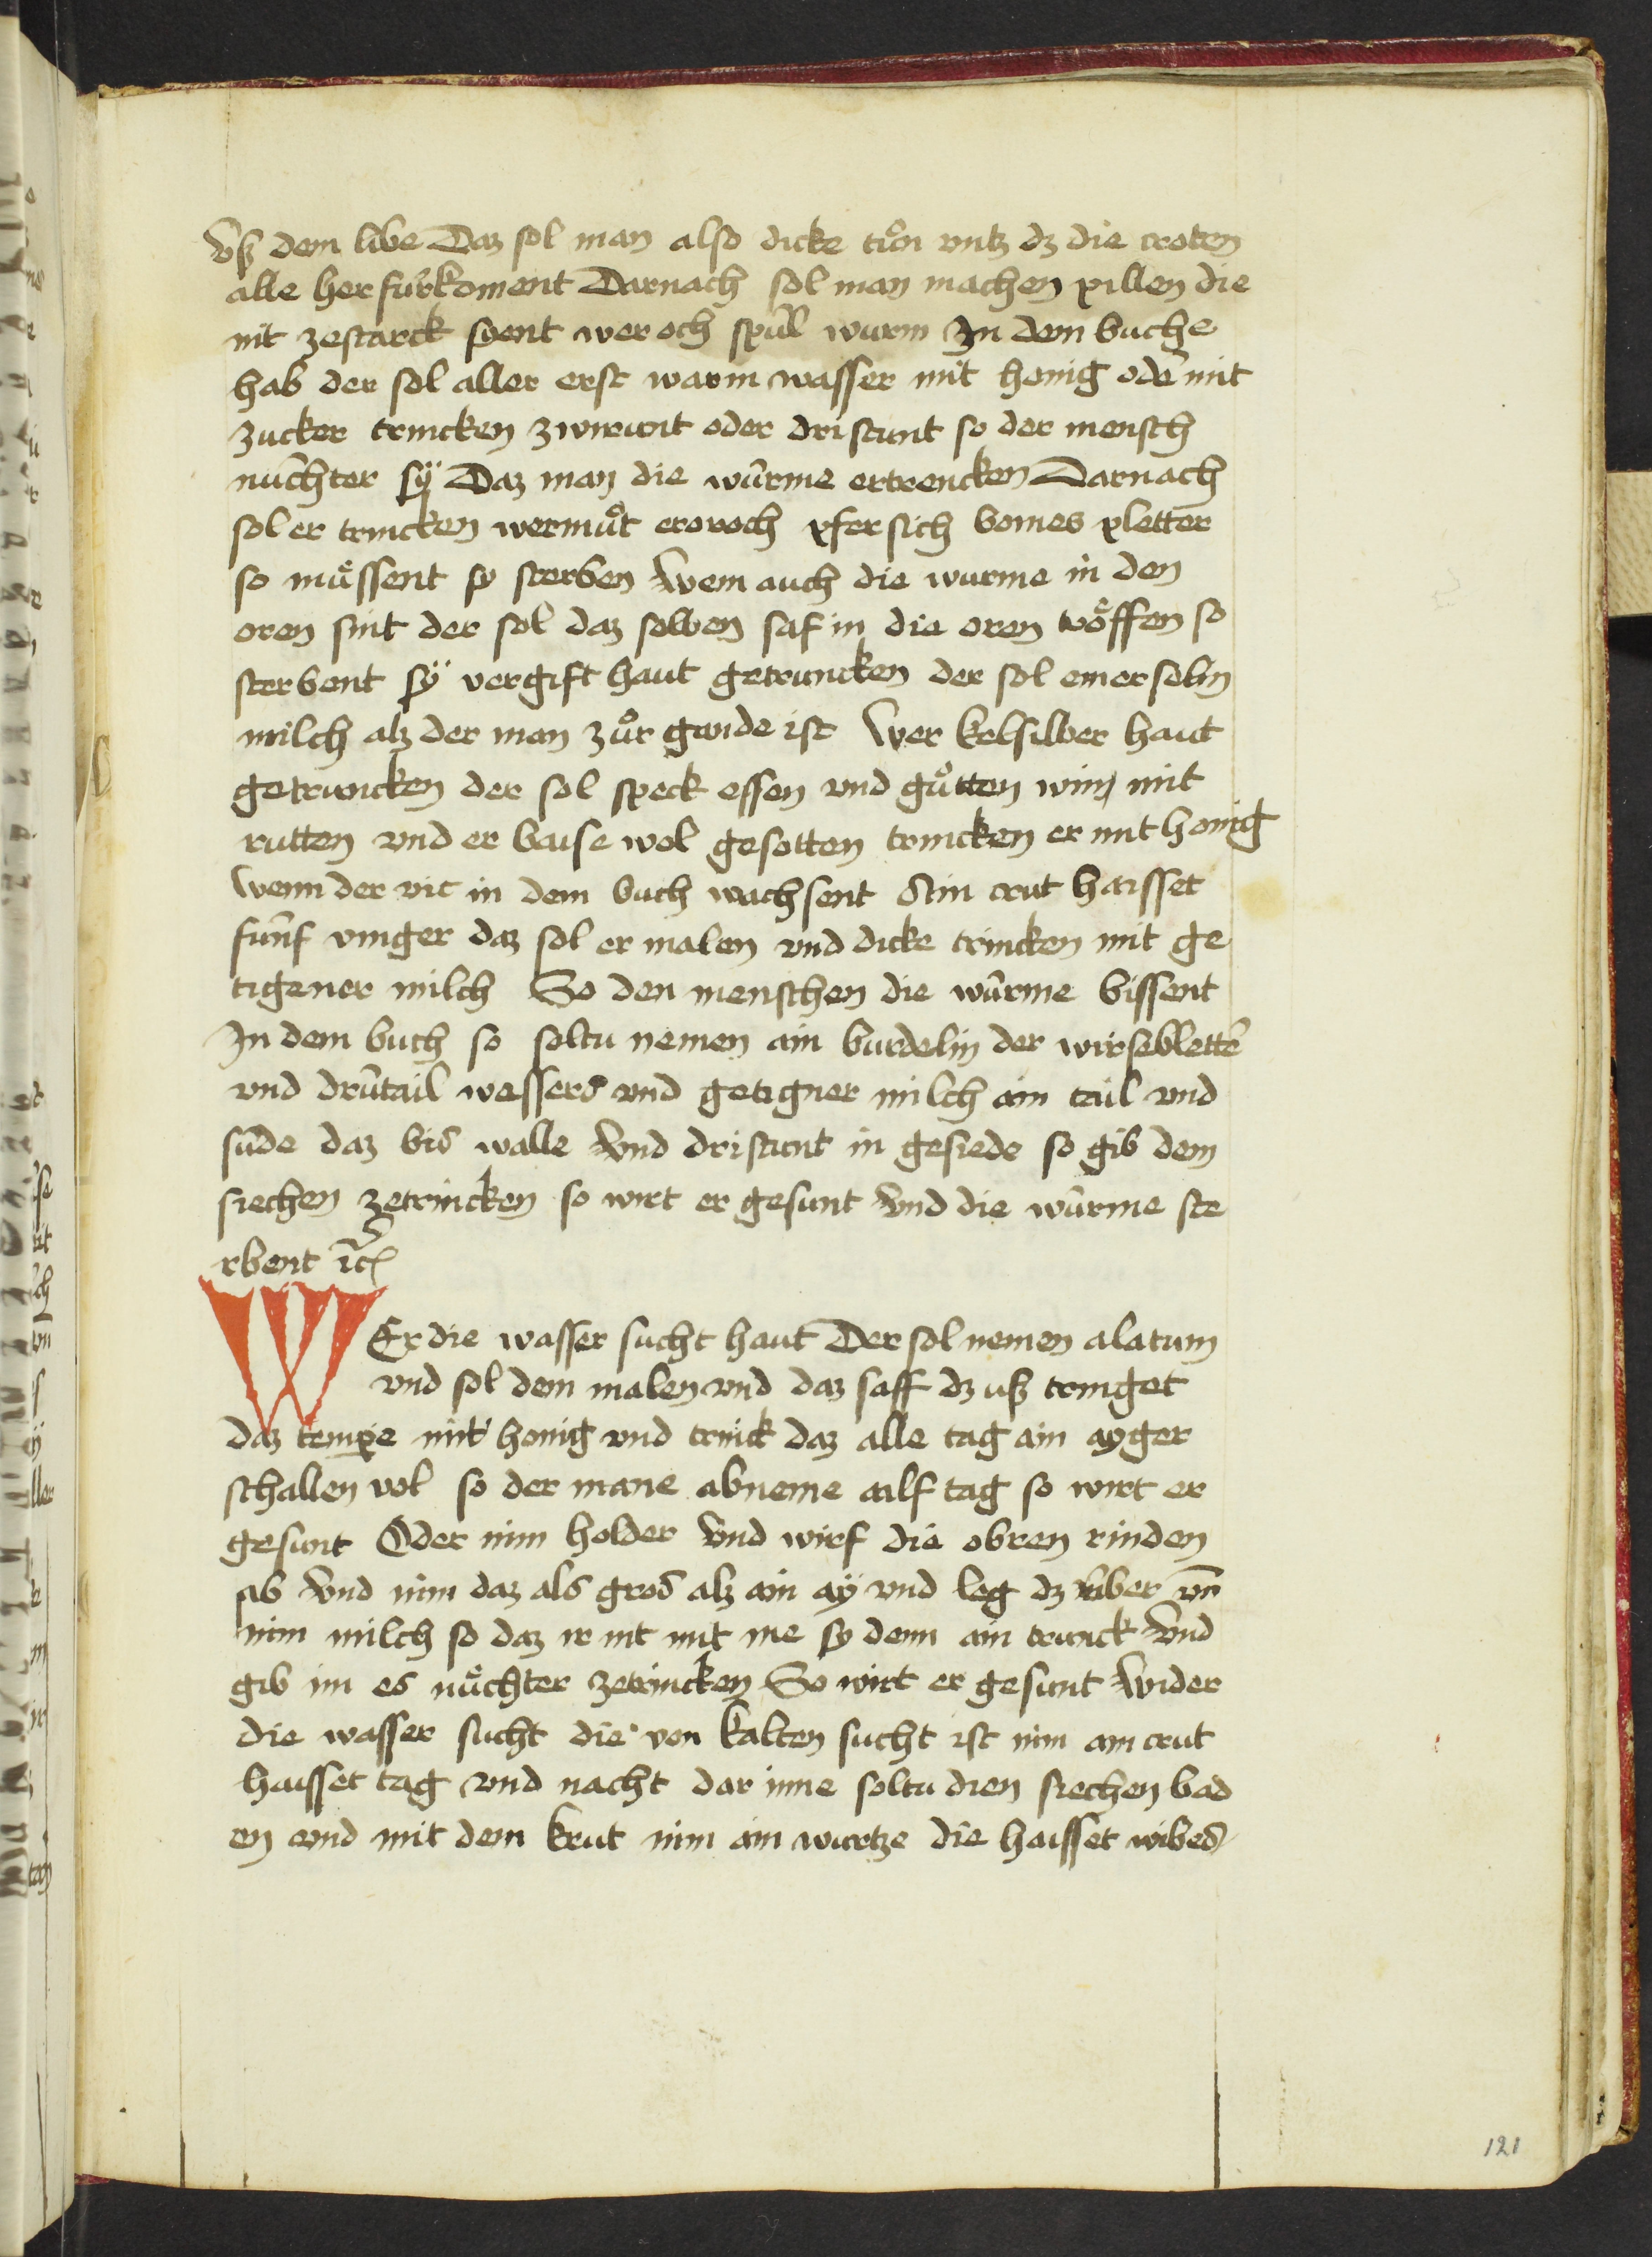 vß dem libe Daz sol man also dicke tůn vntz dz die croten
alle her fürkoment Darnach sol man machen pillen die
nit zestarck syent wer och spül wurm In dem buche
hab der sol aller erst warm wasser mit honig oder̄ mit
zucker trincken zwirunt oder dristunt so der mensch
nüchter sÿ Daz man die würme ertrencken Darnach
sol er trincken wermůt pfersich bomes pletter
so mu̓ssent sy sterben Wem auch die wurme in den
oren sint der sol daz selben saf in die oren tröffen so
sterbent sÿ vergift haut getruncken der sol einer selin
milch alz der man zůr gende ist Wer kelsilber haut
getruncken der sol speck essen vnd gůtten win mit
rutten vnd er baise wol gesotten trincken er mit honig
Wenn der vic in dem buch wachsent Ain crut haisset
fünf vinger daz sol er malen vnd dicke trincken mit ge
tigener milch So den menschen die würme bissent
In dem buch so soltu nemen ain burdelin der wirsebletter̄
vnd drütail wassers vnd getigner milch ain tail vnd
süde daz bis walle Vnd dristunt in gesiede so gib dem
siechen zetrincken so wirt er gesunt Vnd die würme ste
rbent ꝛc̃
WEr die wasser sucht haut Der sol nemen alatum
vnd sol dem malen vnd daz saff dz uß tringet
daz tempe mit honig vnd trinck daz alle tag ain ayger
schallen vol so der mane abneme ailf tag so wirt er
gesunt Oder nim holder Vnd wirf die obren rinden
ab Vnd nim daz als gros alz ain aÿ vnd leg dz v̈ber vn̄
nim milch so daz ir nit mit me sy denn ain trunck Vnd
gib im es nüchter zetrincken So wirt er gesunt Wider
die wasser sucht die von kalten sucht ist nim ain crut
haisset tag vnd nacht dar inne soltu dien siechen bad
en vnd mit dem krut nim ain wurtze die haisset wibes
121